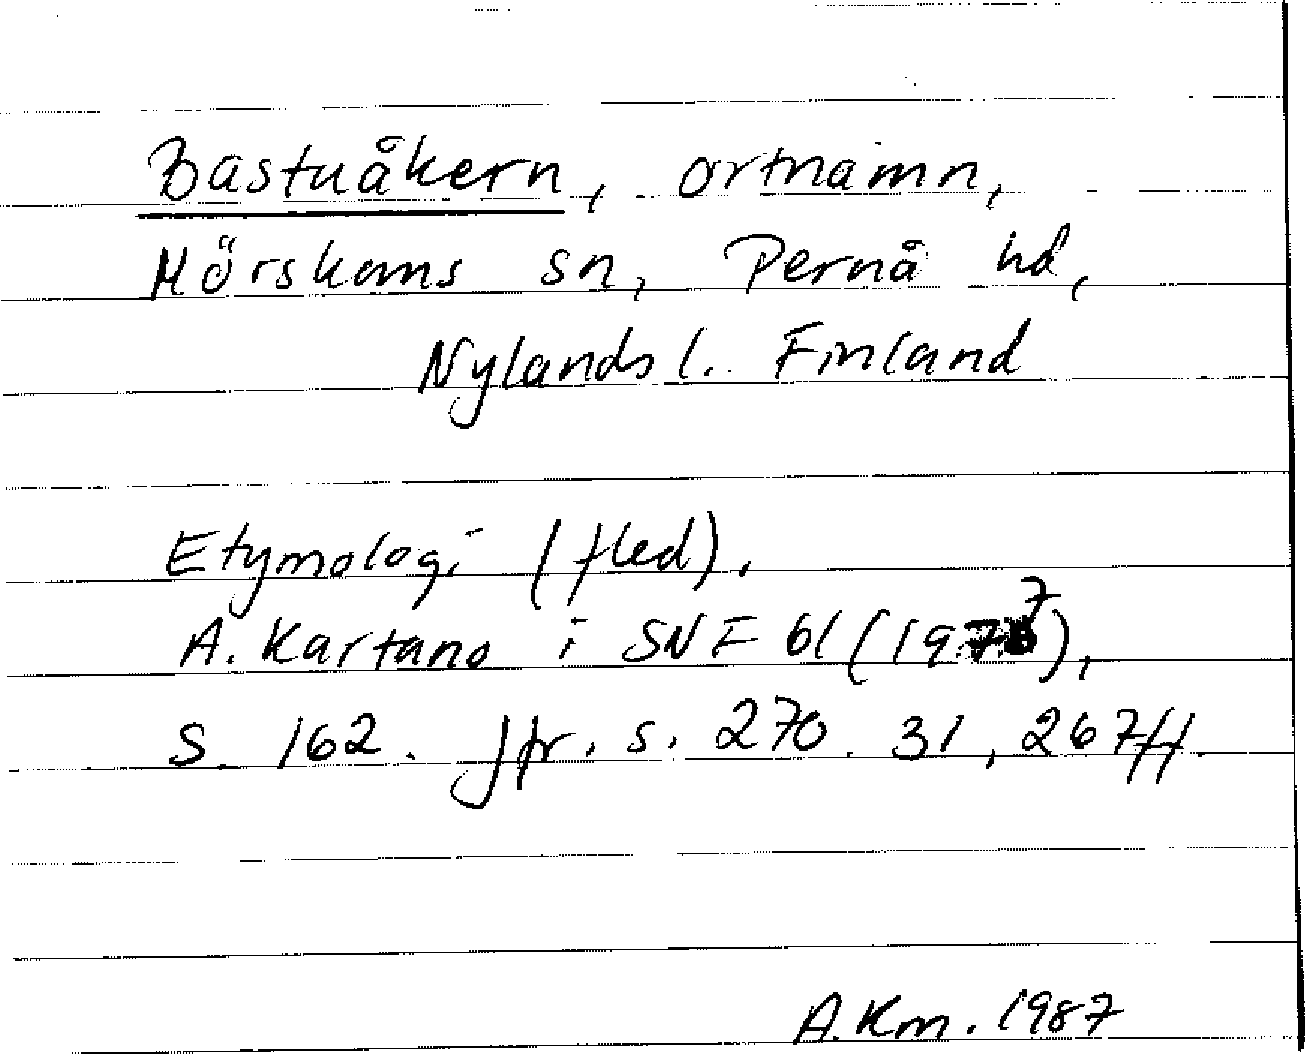 Bastuåkern, ortnamn,
Mörskoms sn, Pernå hd,
Nylands l. Finland
Etymologi (fled),
A. Kartano i SNF 61 (1977),
s. 162. Jfr. s. 270. 31, 267ff.
A.Km. 1987